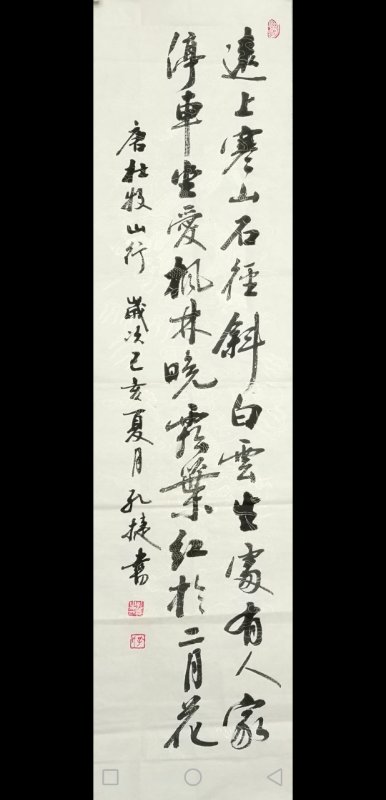 遠上寒山石徑斜白雲生處有人家
停車坐愛楓林晚霜葉紅於二月花
唐杜牧山行 歲次己亥夏月孔捷書